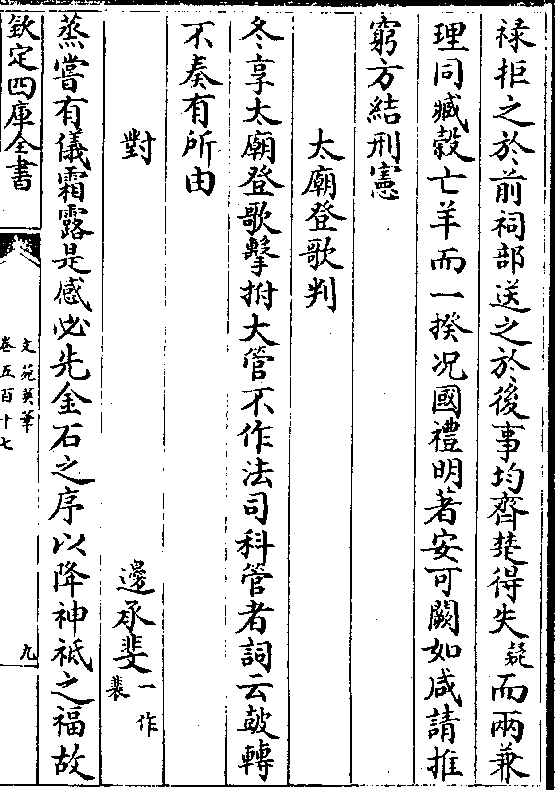 禄拒之於前祠部送之於後事均齊楚得失疑而兩兼
理同臧穀亡羊而一揆况國禮明著安可闕如咸請推
窮方結刑憲
太廟登歌判
冬享太廟登歌擊拊大管不作法司科管者詞云皷轉
不奏有所由
對
邊承斐一作裴
蒸嘗有儀霜露是感必先金石之序以降神祗之福故
欽定四庫全書
文苑英華
卷五百十七
九